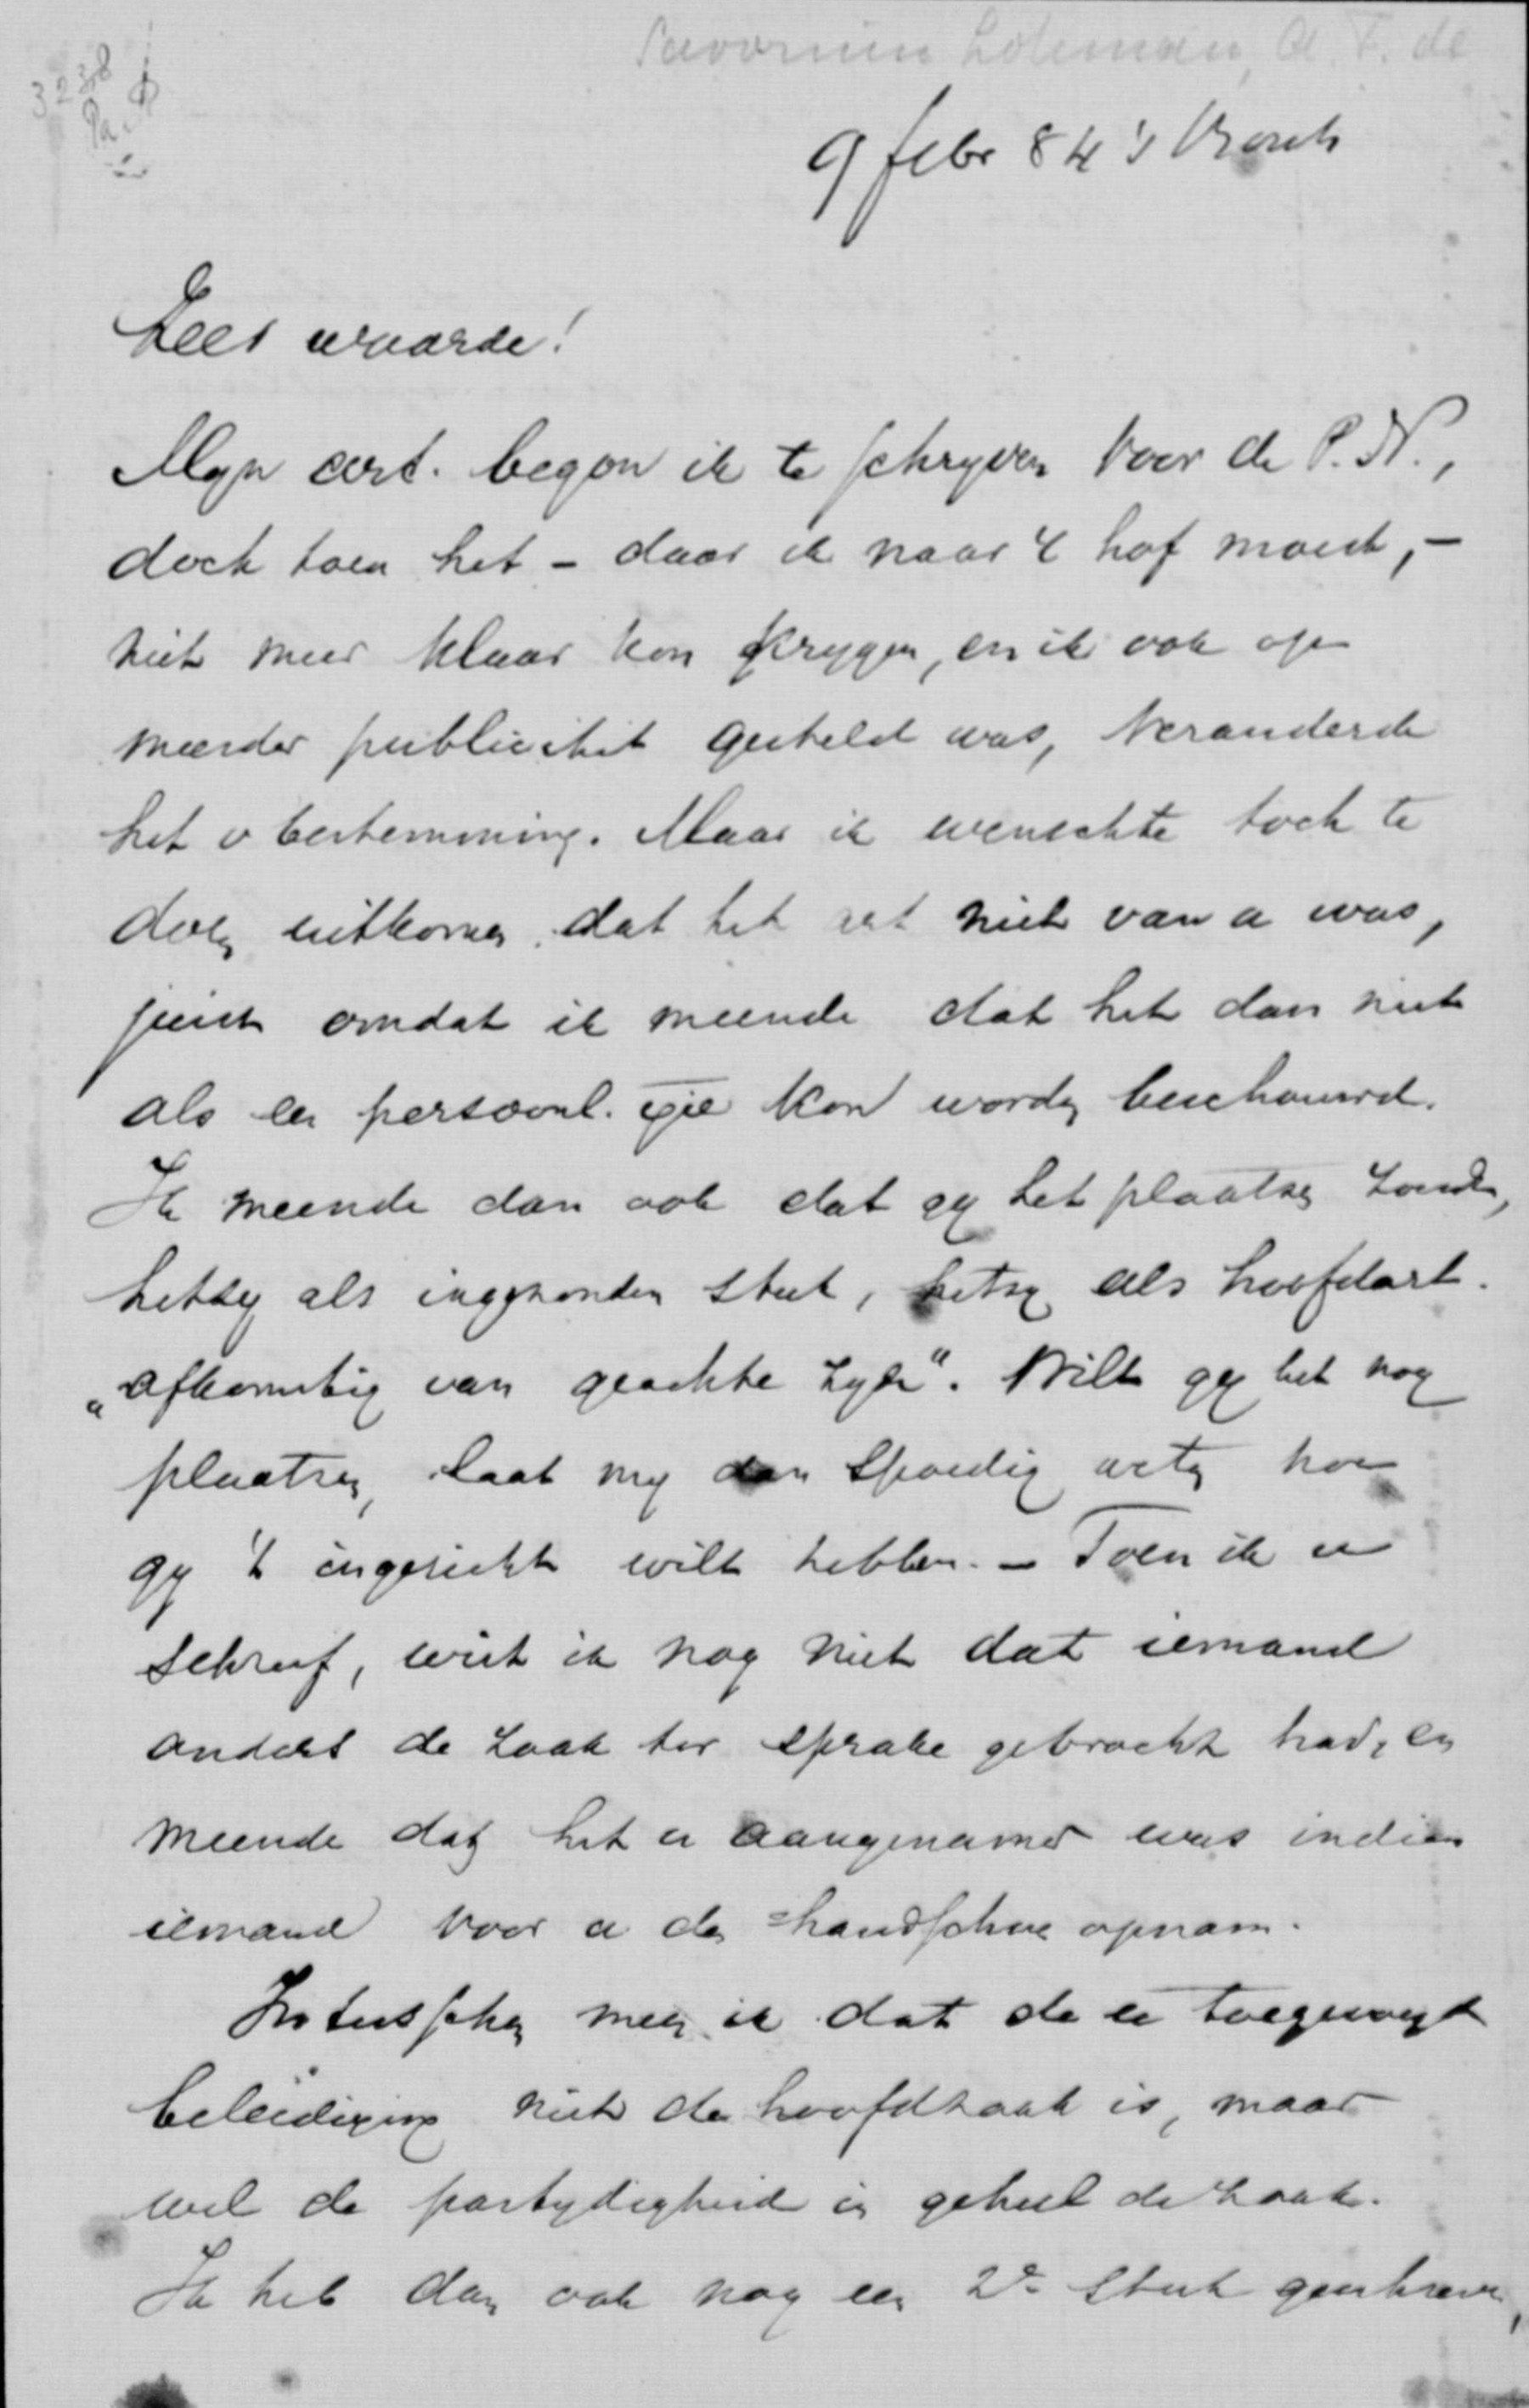 Savornin Lohman, A. F. de
3238
9 febr 84 's Bosch
Zeer waarde!
Myn art. begon ik te schryven voor de P. N.,
doch toen het - daar ik naar 't hof moest, -
niet meer klaar kon krygen, en ik ook op
meerder publiciteit gesteld was, veranderde
het v bestemming. Maar ik wenschte toch te
doen uitkomen dat het art niet van u was,
juist omdat ik meende dat het dan niet
als een persoonl. qie kon worden beschouwd.
Ik meende dan ook dat gy het plaatsen zoudt,
hetzy als ingezonden stuk, hetzy als hoofdart.
"afkomstig van geachte zyde". Wilt gy het nog
plaatsen, laat my dan spoedig weten hoe
gy 't ingericht wilt hebben. - Toen ik u
schreef, wist ik nog niet dat iemand
anders de zaak ter sprake gebracht had, en
meende dat het u aangenamer was indien
iemand voor u den handschoe opnam.
Intusschen meen ik dat de u toegevoegde
beleediging niet de hoofdzaak is, maar
wel de partydigheid in geheel de zaak.
Ik heb dan ook nog een 2e stuk geschreven,